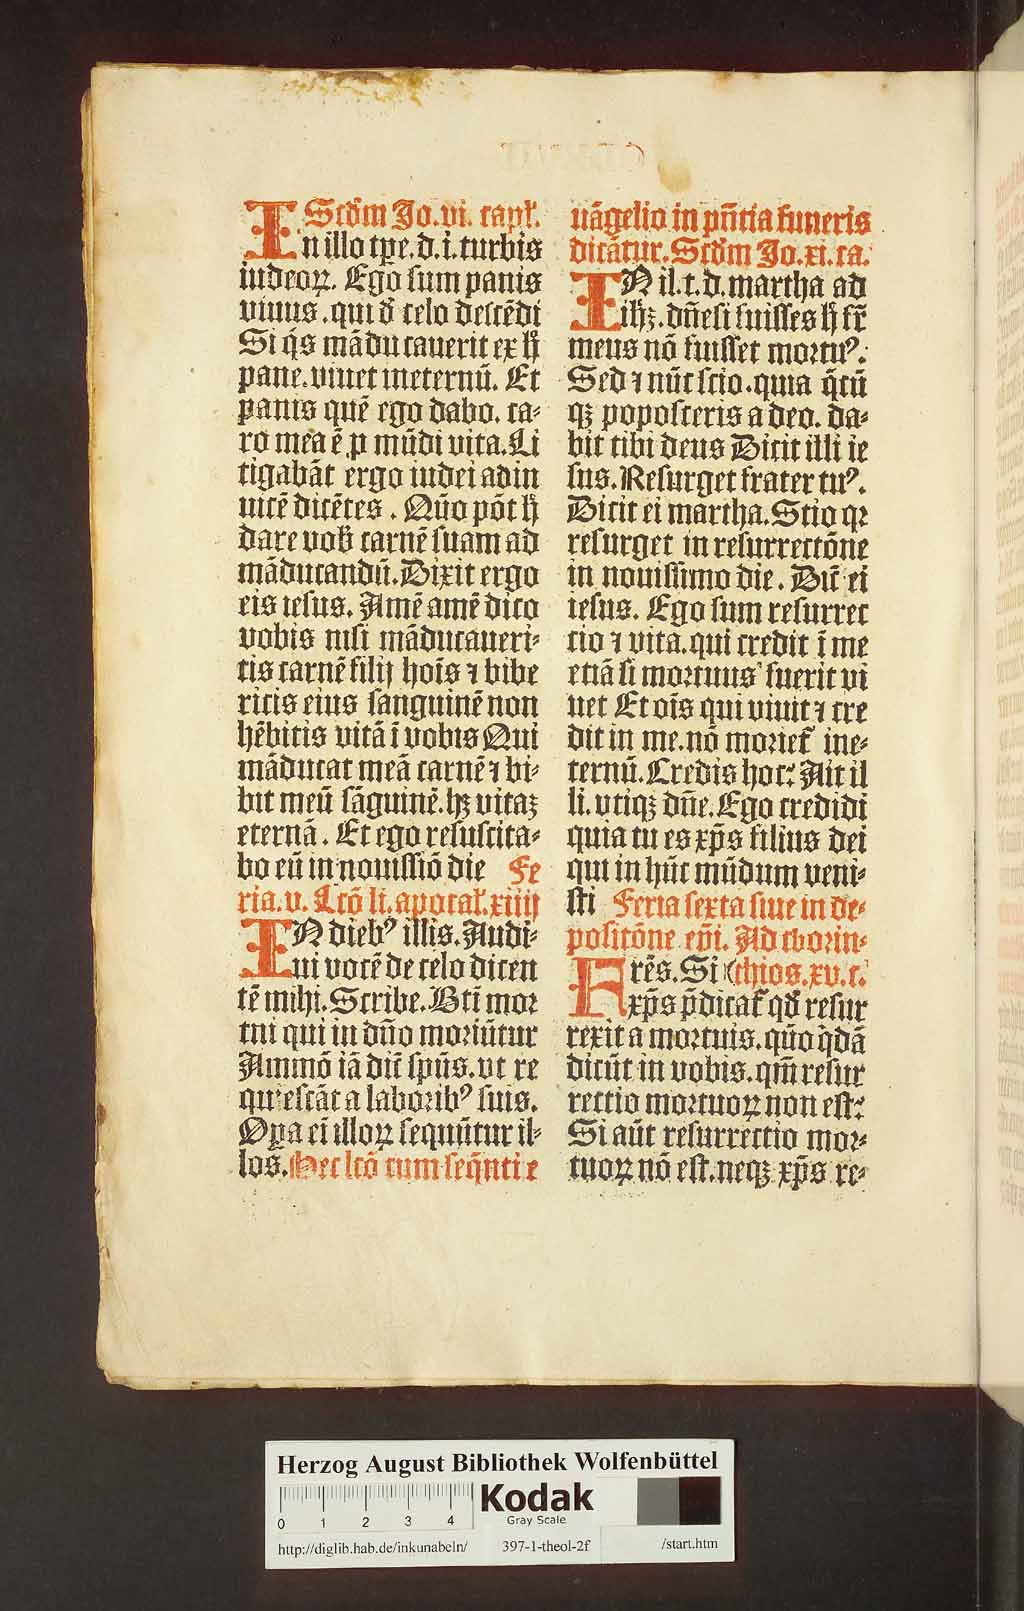 Scd'm Jo. vi. capl'.
In illo tpe. d. i. turbis
iudeoꝝ. Ego sum panis
viuus. qui d' celo descēdi
Si q̇s māducauerit ex h̊
pane. viuet ineternū. Et
panis quē ego dabo. ca-
ro mea ē ꝓ mūdi vita. Li
tigabāt ergo iudei adin
uicē dicētes. Quō pōt h̊
dare vob̄ carnē suam ad
māducandū. Dixit ergo
eis iesus. Amē amē dico
vobis nisi māducaueri-
tis carnē filij hoīs ⁊ bibe
ritis eius sanguinē non
hēbitis vitā ī vobis Qui
māducat meā carnē ⁊ bi-
bit meū sāguinē. hꝫ vitaꝫ
eternā. Et ego resuscita-
bo eū in nouissiō die Fe
ria. v. Lcō li. apocal'. xiiij
IN diebꝰ illis. Audi-
ui vocē de celo dicen
tē mihi. Scribe. Bti mor
tui qui in dño moriūtur
Ammō iā dic̄ spūs. vt re
quiescāt a laboribꝰ suis.
Oꝑa ei illoꝝ sequūtur il-
los. Hec lcō cum seq̄nti e
uāgelio in pn̄tia funeris
dicātur. Scd'm Jo. xi. ca.
IN il. t. d. martha ad
ih̄ꝫ. dñe si fuisses h̊ fr̄
meus nō fuisset mortuꝰ.
Sed ⁊ nūc scio. quia q̄cū
qꝫ poposceris a deo. da-
bit tibi deus Dicit illi ie
sus. Resurget frater tuꝰ.
Dicit ei martha. Scio qꝛ
resurget in resurrectōne
in nouissimo die. Dic̄ ei
iesus. Ego sum resurrec
tio ⁊ vita. qui credit ī me
etiā si mortuus fuerit vi
uet Et oīs qui viuit ⁊ cre
dit in me. nō morieť ine-
ternū. Credis hoc? Ait il
li. vtiqꝫ dñe. Ego credidi
quia tu es xp̄s filius dei
qui in hūc mūdum veni-
sti Feria sexta siue in de-
positōne ep̄i. Ad chorin-
Frēs. Si (thios. xv. c.
xp̄s p̄dicať qd' resur
rexit a mortuis. quō q̇dā
dicūt in vobis. qm̄ resur
rectio mortuoꝝ non est?
Si aūt resurrectio mor-
tuoꝝ nō est. neqꝫ xp̄s re-
Herzog August Bibliothek Wolfenbüttel
0 1 2 3 4
Kodak
Gray Scale
http://diglib.hab.de/inkunabeln/ 397-1-theol-2f /start.htm